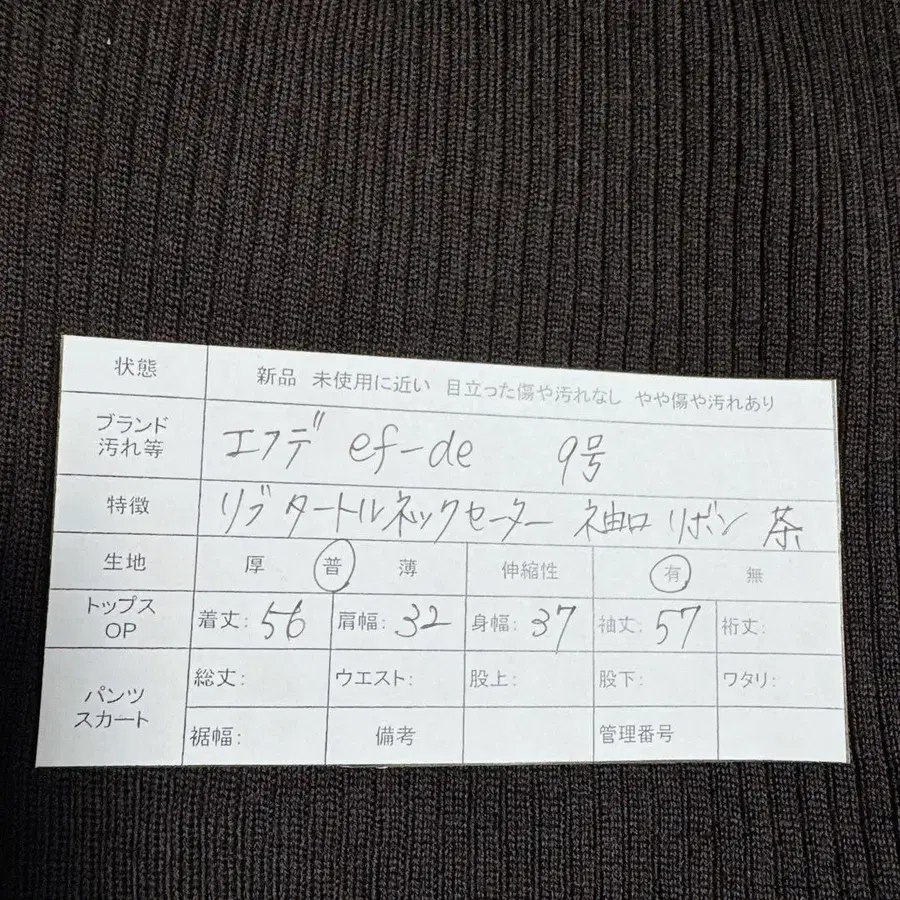 状態 新品 未使用に近い 目立った傷や汚れなし やや傷や汚れあり
ブランド
汚れ等 エフデ ef-de 9号
特徴 リブタートルネックセーター 袖口 リボン 茶
生地 厚 普 薄 伸縮性 有 無
トップス
OP 着丈: 56 肩幅: 32 身幅: 37 袖丈: 57 裄丈:
パンツ
スカート 総丈: ウエスト: 股上: 股下: ワタリ:
裾幅: 備考 管理番号